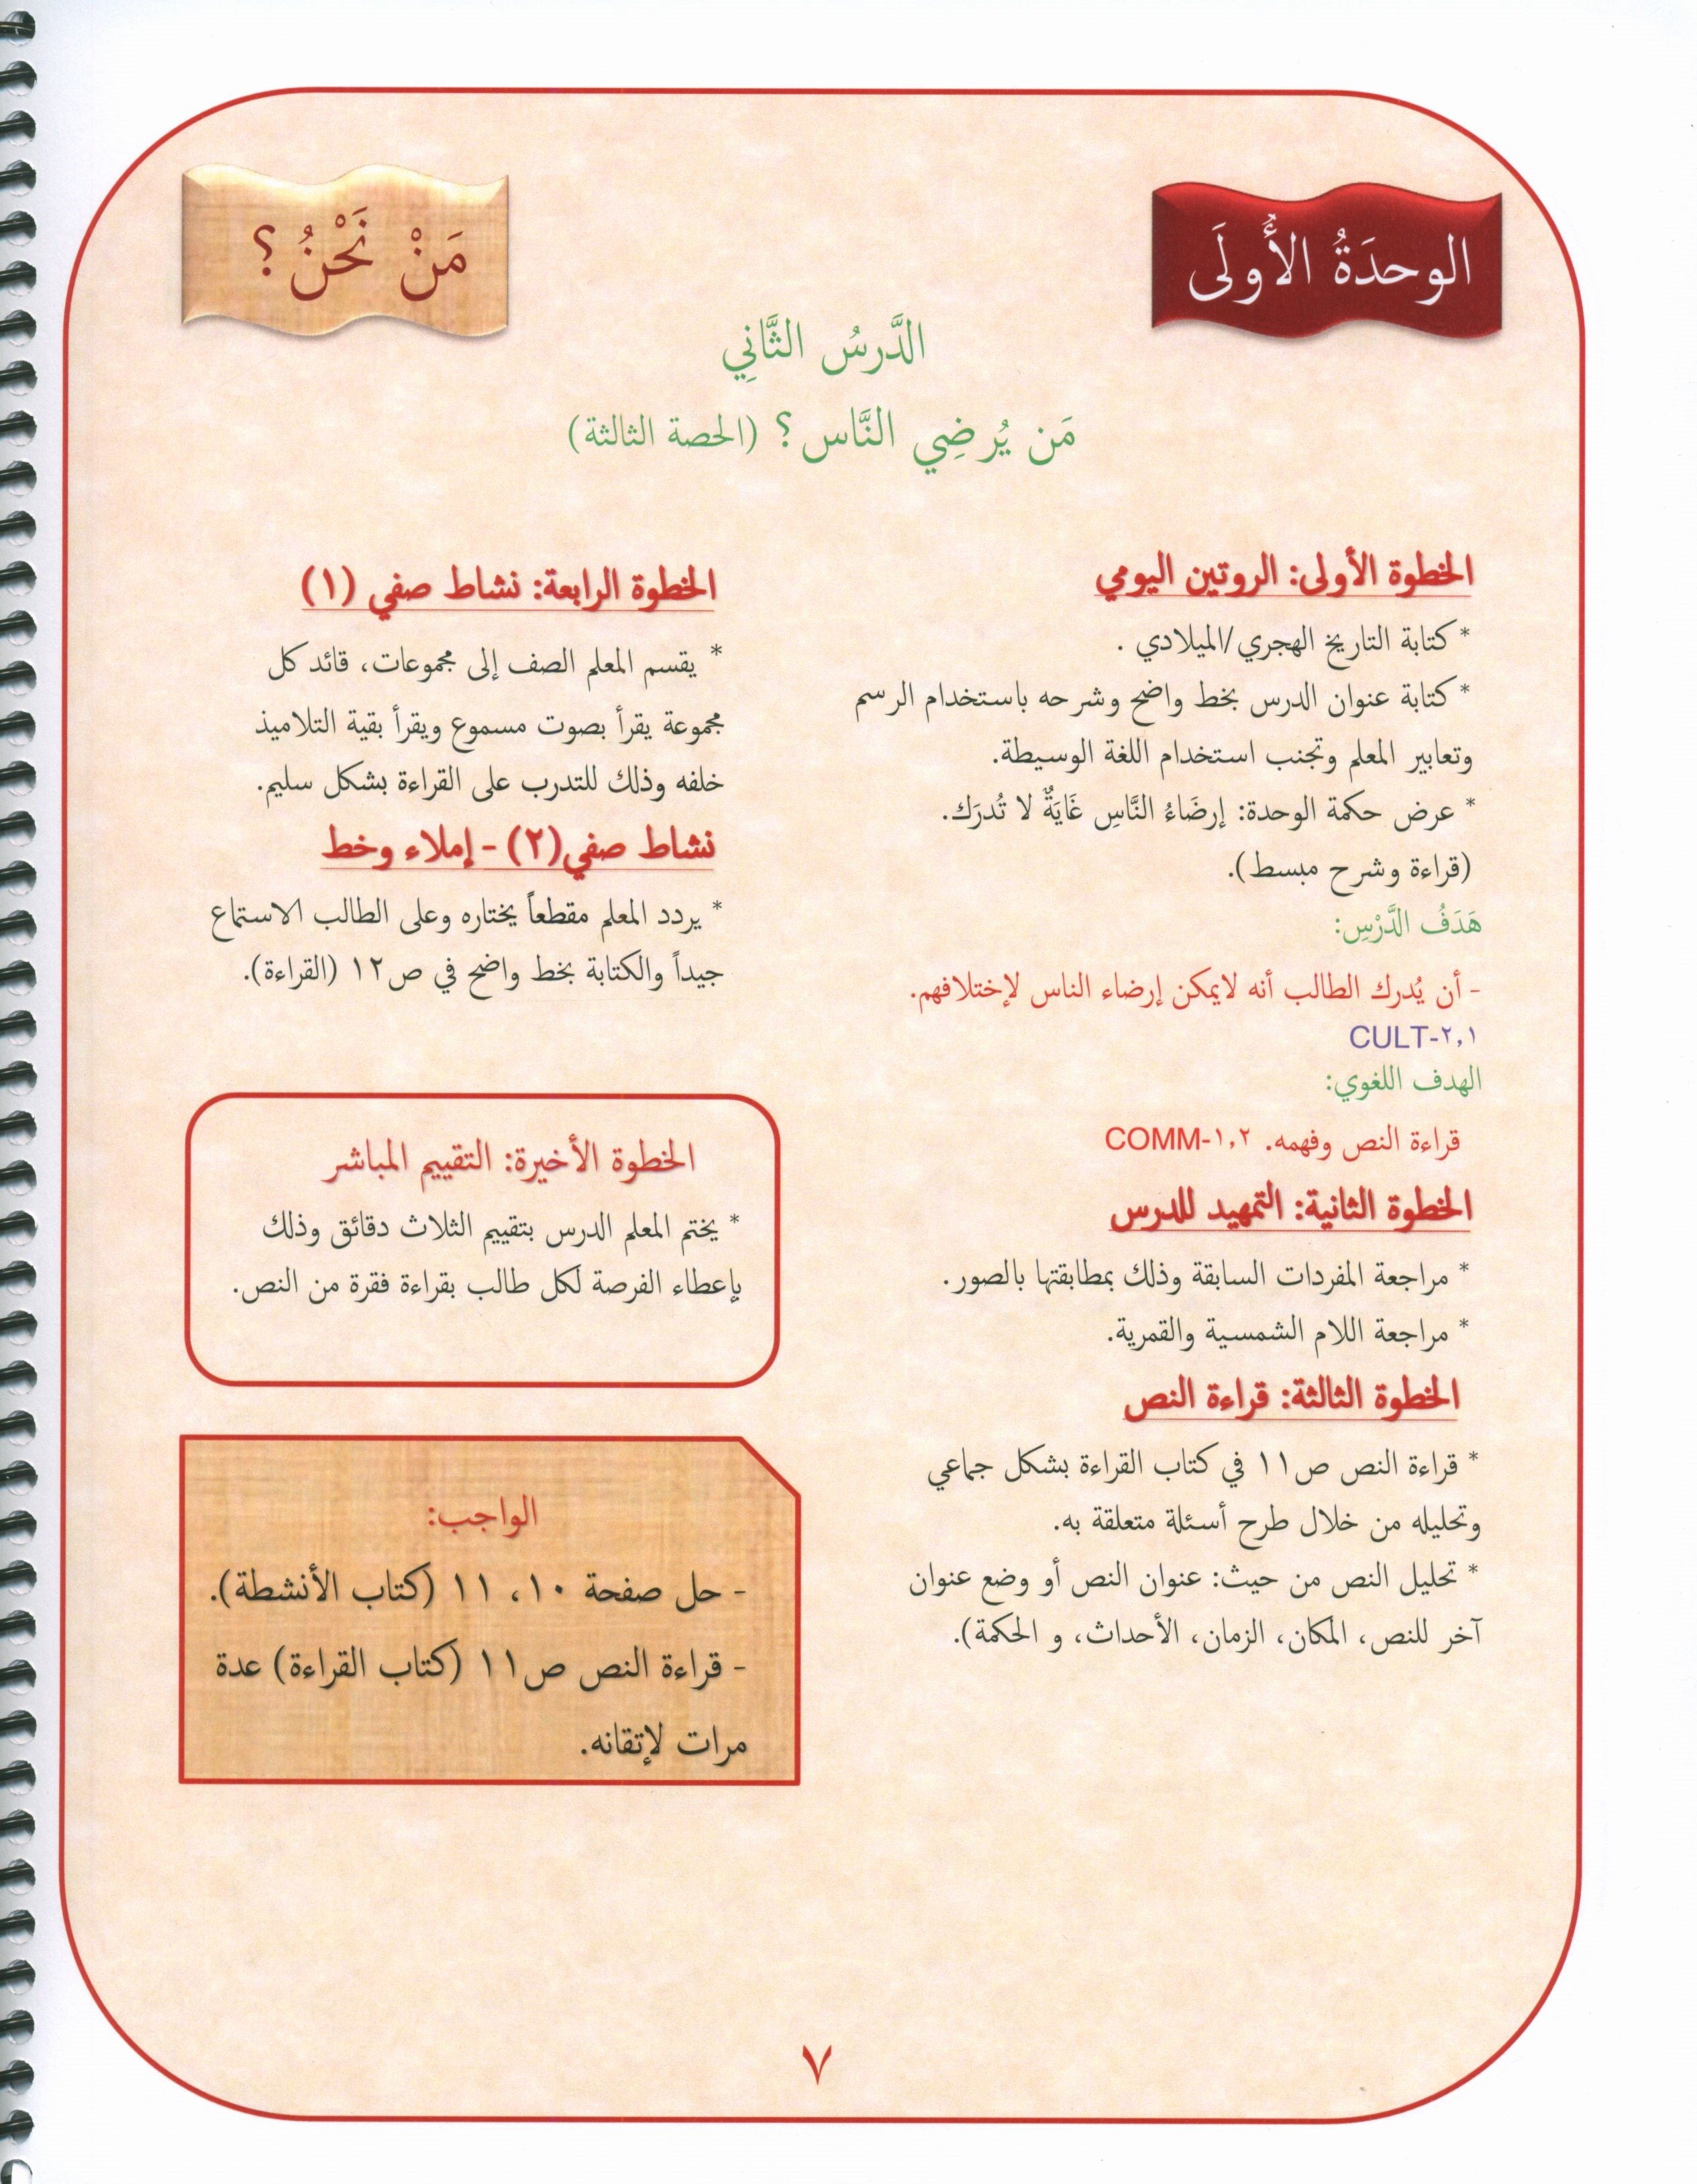 الوحدَةُ الأُولَى
مَنْ نَحْنُ؟
الدَّرسُ الثَّانِي
مَن يُرضِي النَّاس؟ (الحصة الثالثة)
الخطوة الأولى: الروتين اليومي
* كتابة التاريخ الهجري/الميلادي .
* كتابة عنوان الدرس بخط واضح وشرحه باستخدام الرسم
وتعابير المعلم وتجنب استخدام اللغة الوسيطة.
* عرض حكمة الوحدة: إرضَاءُ النَّاسِ غَايَةٌ لا تُدرَك.
(قراءة وشرح مبسط).
هَدَفُ الدَّرْسِ:
- أن يُدرك الطالب أنه لايمكن إرضاء الناس لإختلافهم.
CULT-٢,١
الهدف اللغوي:
قراءة النص وفهمه. COMM-١,٢
الخطوة الثانية: التمهيد للدرس
* مراجعة المفردات السابقة وذلك بمطابقتها بالصور.
* مراجعة اللام الشمسية والقمرية.
الخطوة الثالثة: قراءة النص
* قراءة النص ص١١ في كتاب القراءة بشكل جماعي
وتحليله من خلال طرح أسئلة متعلقة به.
* تحليل النص من حيث: عنوان النص أو وضع عنوان
آخر للنص، المكان، الزمان، الأحداث، و الحكمة).
الخطوة الرابعة: نشاط صفي (١)
* يقسم المعلم الصف إلى مجموعات، قائد كل
مجموعة يقرأ بصوت مسموع ويقرأ بقية التلاميذ
خلفه وذلك للتدرب على القراءة بشكل سليم.
نشاط صفي(٢) - إملاء وخط
* يردد المعلم مقطعاً يختاره وعلى الطالب الاستماع
جيداً والكتابة بخط واضح في ص١٢ (القراءة).
الخطوة الأخيرة: التقييم المباشر
* يختم المعلم الدرس بتقييم الثلاث دقائق وذلك
بإعطاء الفرصة لكل طالب بقراءة فقرة من النص.
الواجب:
- حل صفحة ١٠، ١١ (كتاب الأنشطة).
- قراءة النص ص١١ (كتاب القراءة) عدة
مرات لإتقانه.
٧